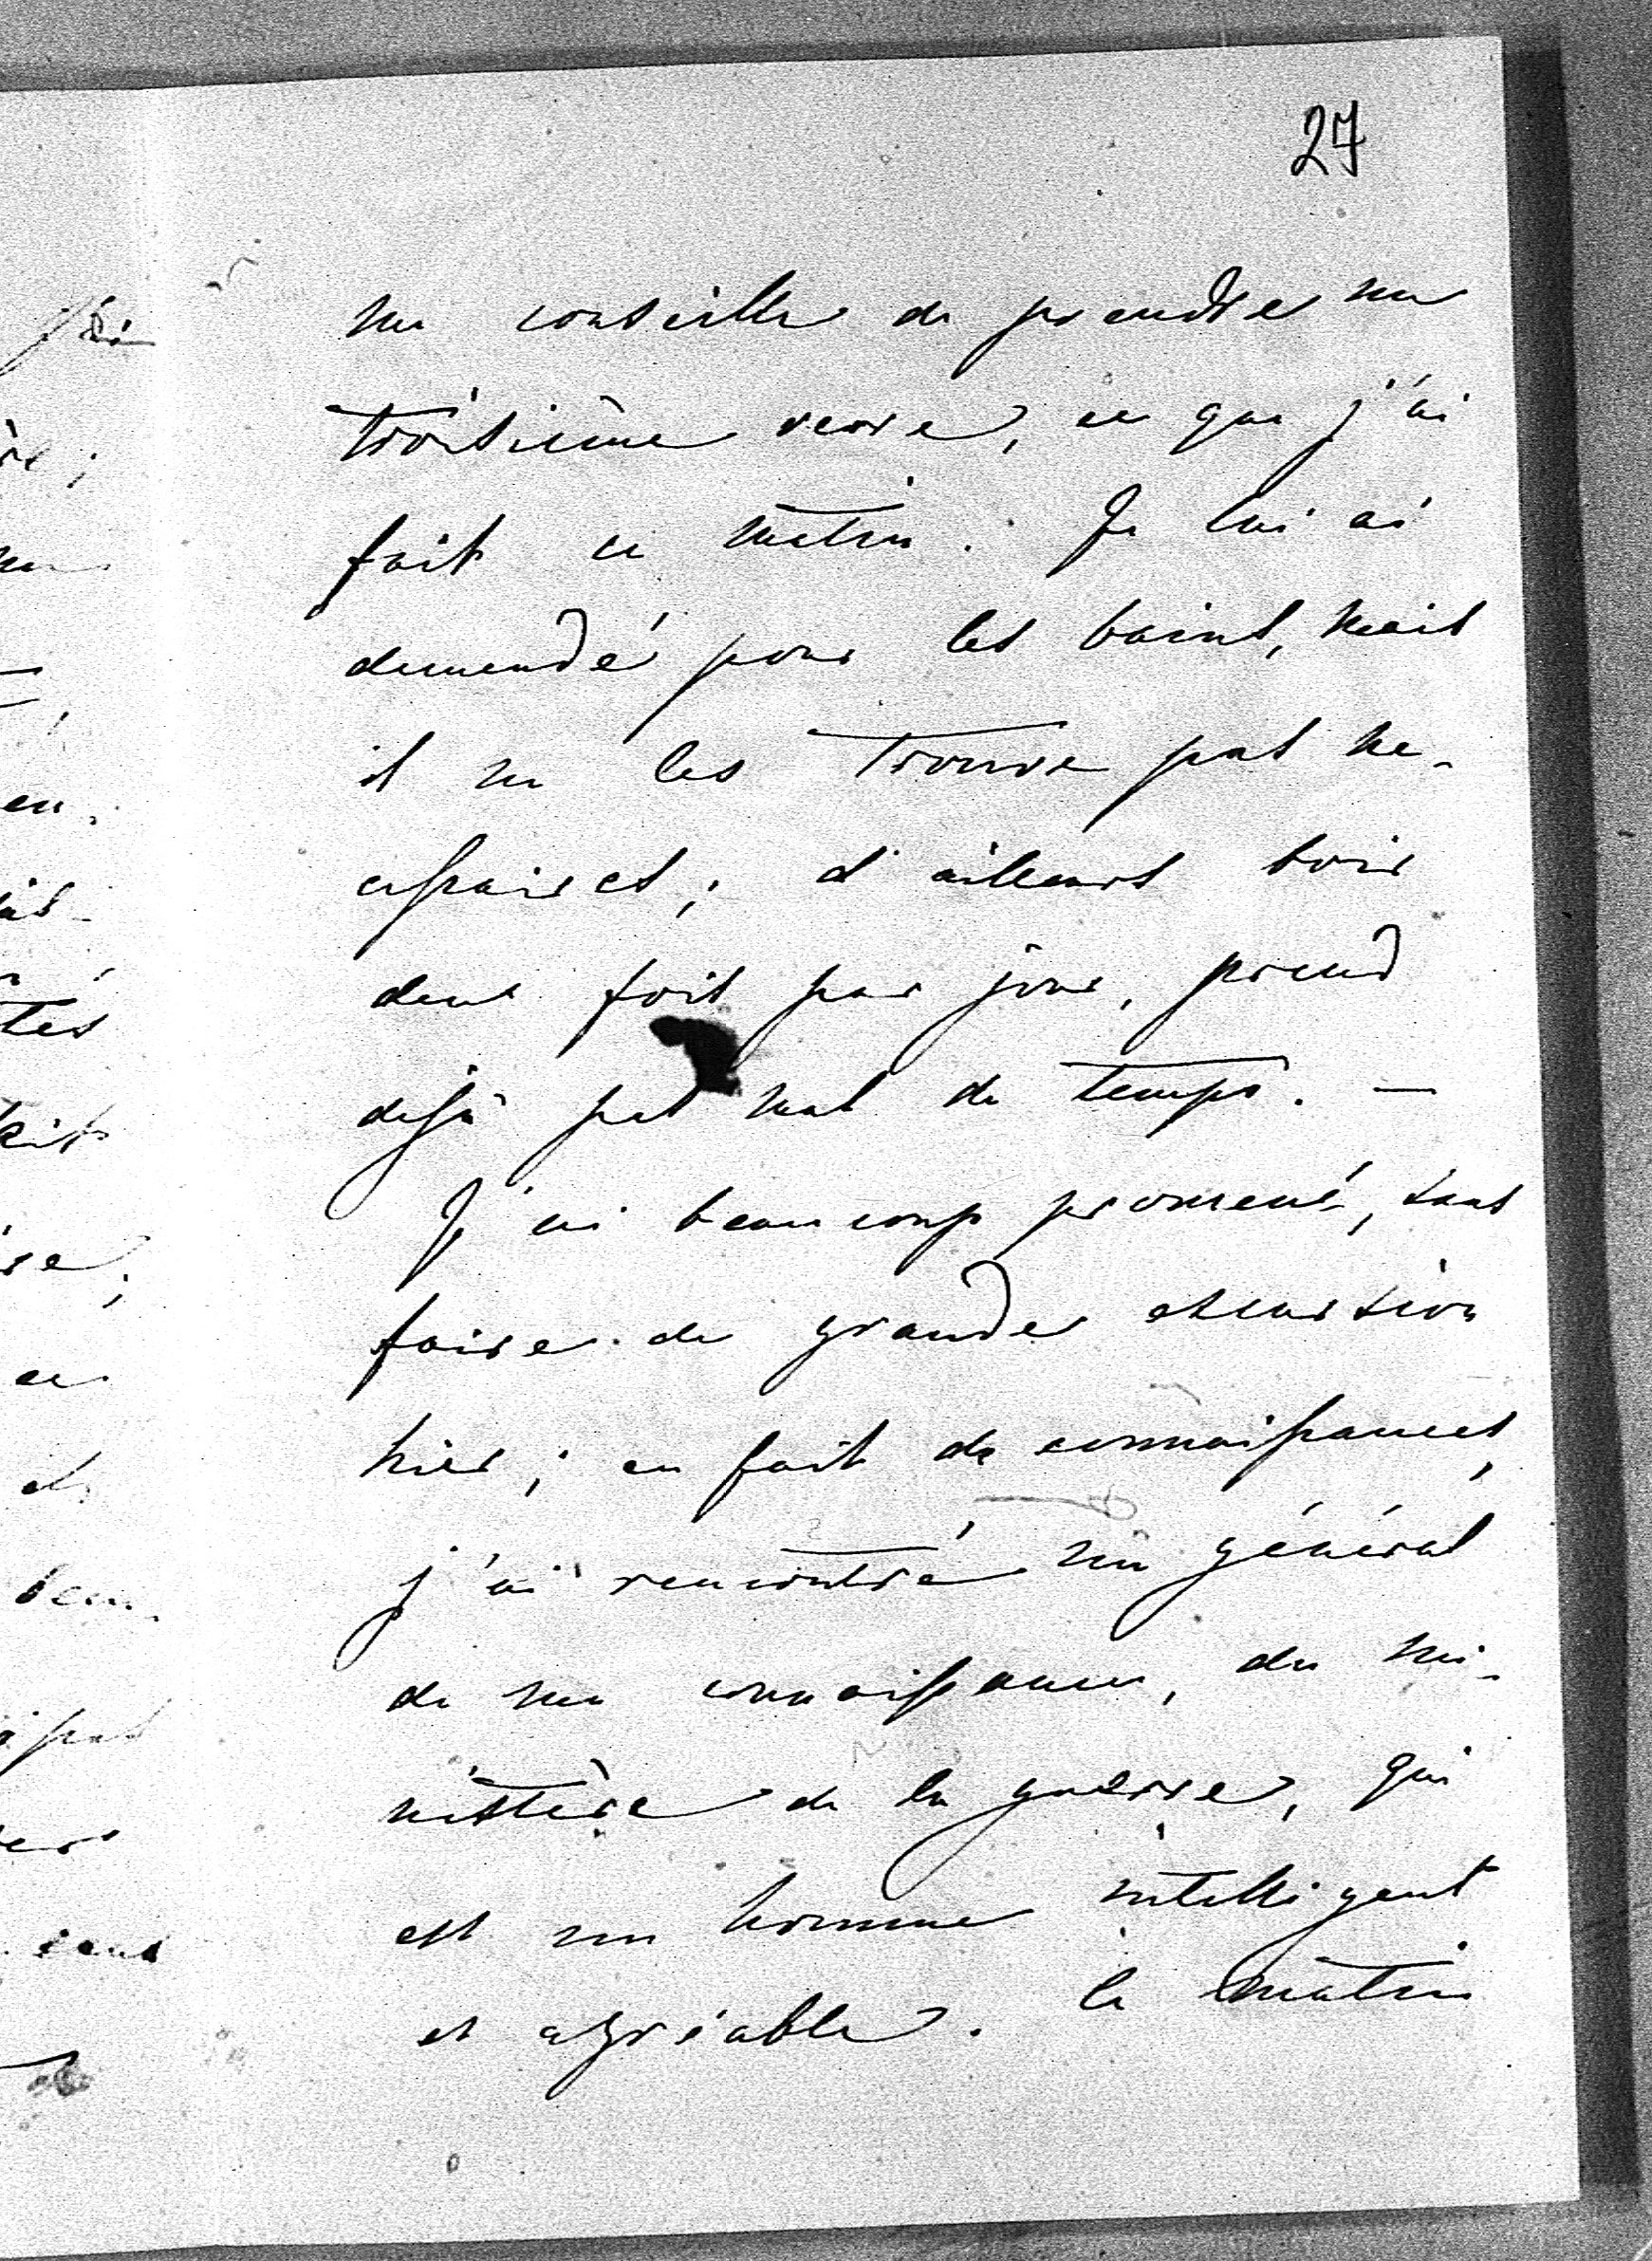 27
me conseille de prendre un
troisième verre, ce que j'ai
fait ce matin. Je lui ai
demandé pour les bains, mais
il ne les trouve pas ne-
cessaires; d'ailleurs boire
deux fois par jour, prend
dejà pas mal de temps. —
J'ai beaucoup promené, sans
faire de grandes excursion
hier; en fait de connaissances,
j'ai rencontré un général
de ma connaissance, du mi-
nistère de la guerre, qui
est un homme intelligent
et agréable. Le matin